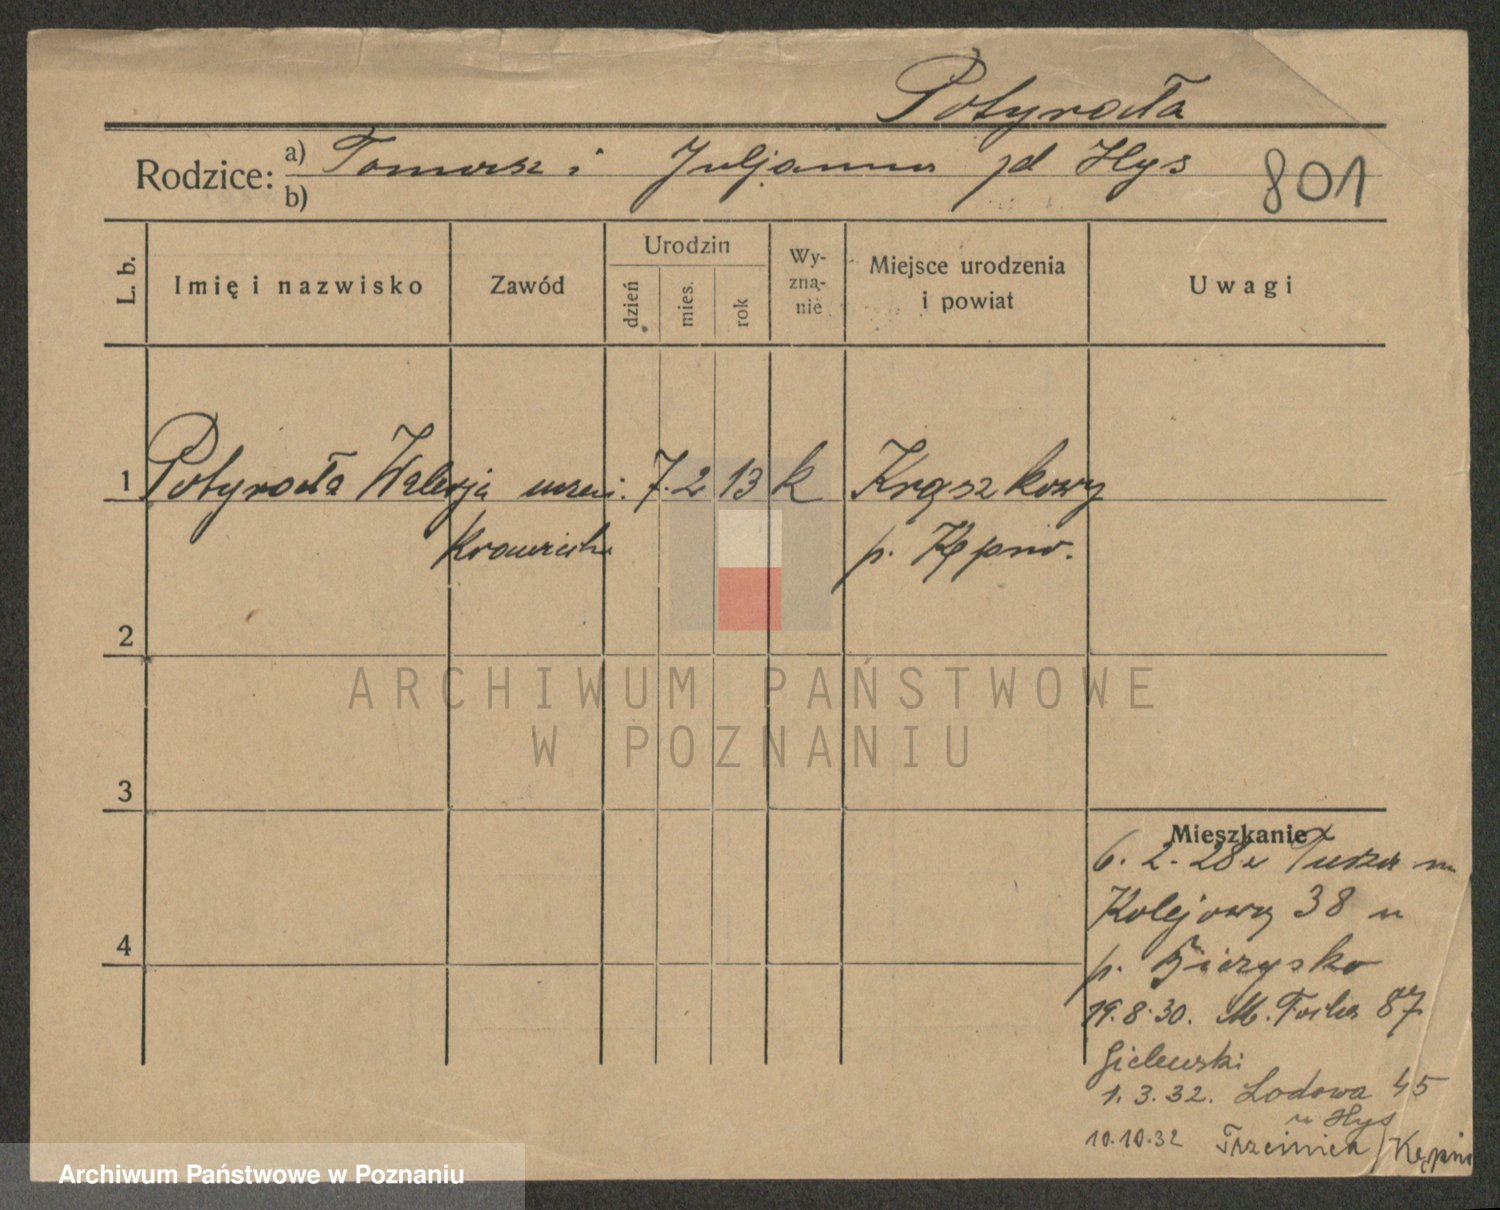 Potyrała
Rodzice:
a) Tomasz i Juljanna zd Hys
b)
801
L. b.
Imię i nazwisko
Zawód
Urodzin
dzień
mies.
rok
Wy-
zna-
nie
Miejsce urodzenia
i powiat
Uwagi
1 Potyrała Walerja uczeń. 7. 2 13 k Kraszkowy
p. Kępno.
2
3
4
Mieszkanie
6. 2. 28 z
Kolejowy 38 u
p.
19. 8. 30. M. Focha 87
1. 3. 32. Lodowa 45
u Hys
10.10.32 Trzcinica / Kępno
ARCHIWUM PAŃSTWOWE
W POZNANIU
Archiwum Państwowe w Poznaniu